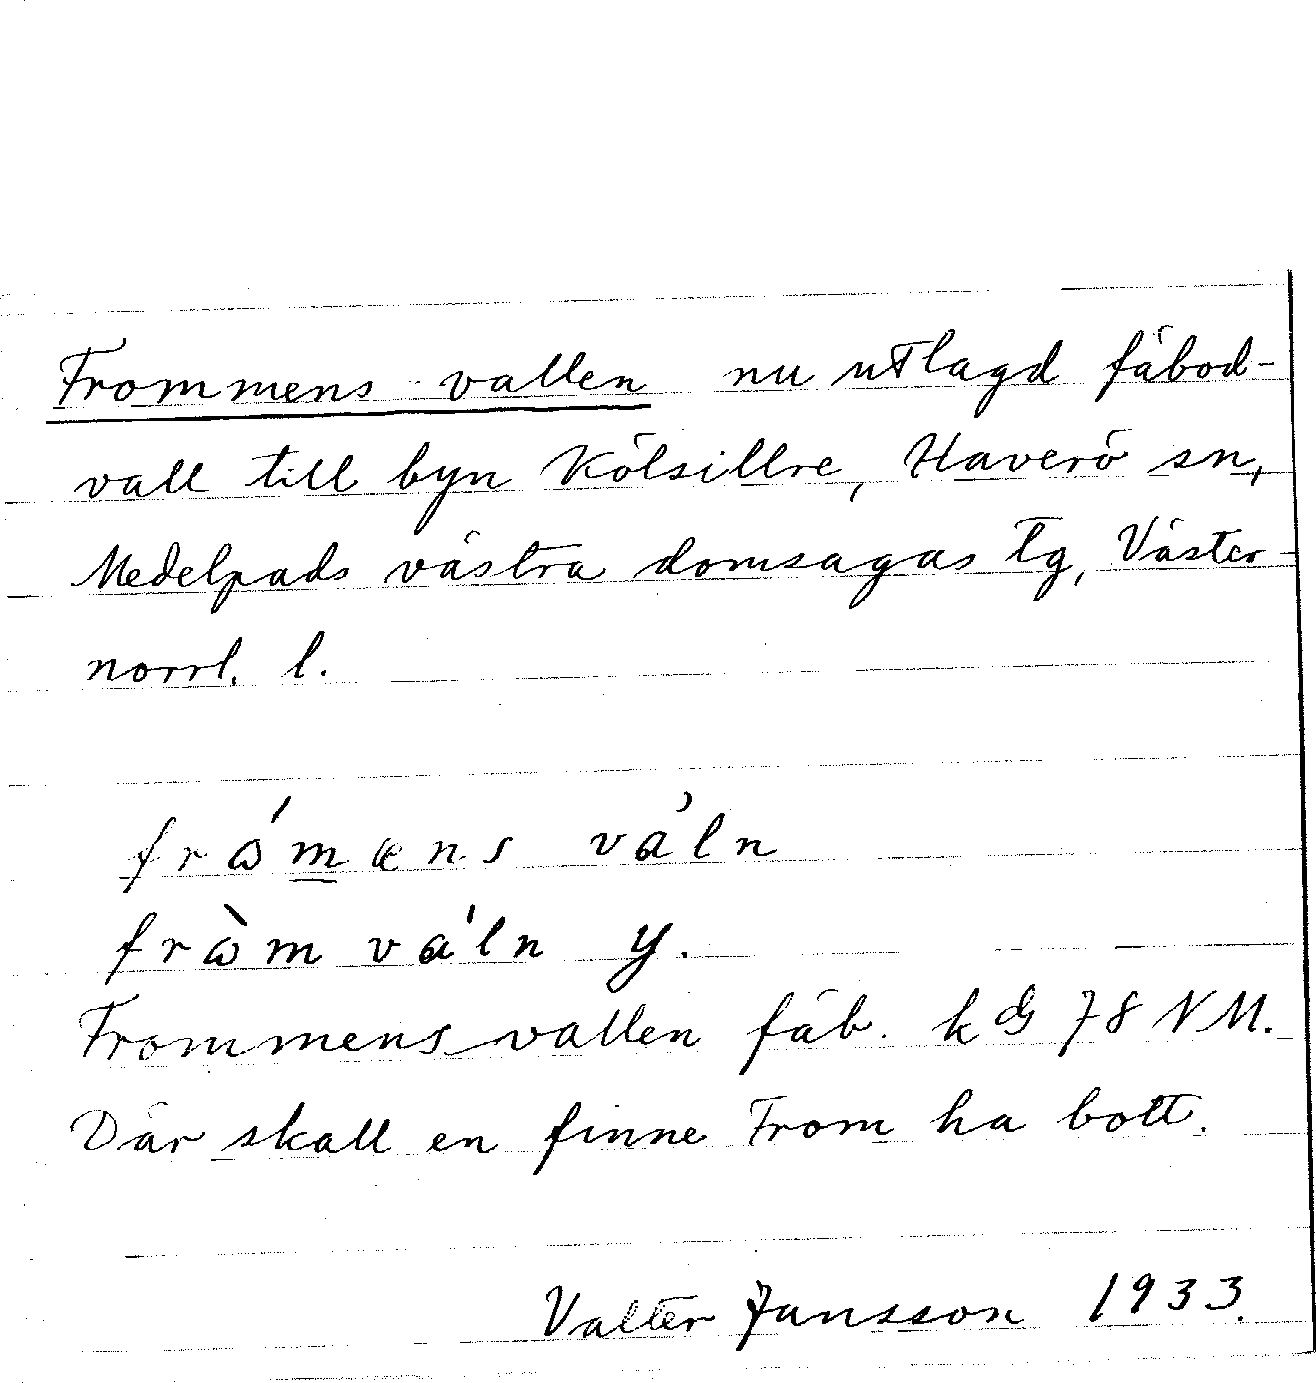 Frommens vallen nu utlagd fäbod-
vall till byn Kölsillre, Haverö sn,
Medelpads västra domsagas tg, Väster-
norrl. l.
frɷ́mæns váln
frɷ̀m váln y.
Frommensvallen fäb. k dg 78 NM.
Där skall en finne From ha bott.
Valter Jansson 1933.